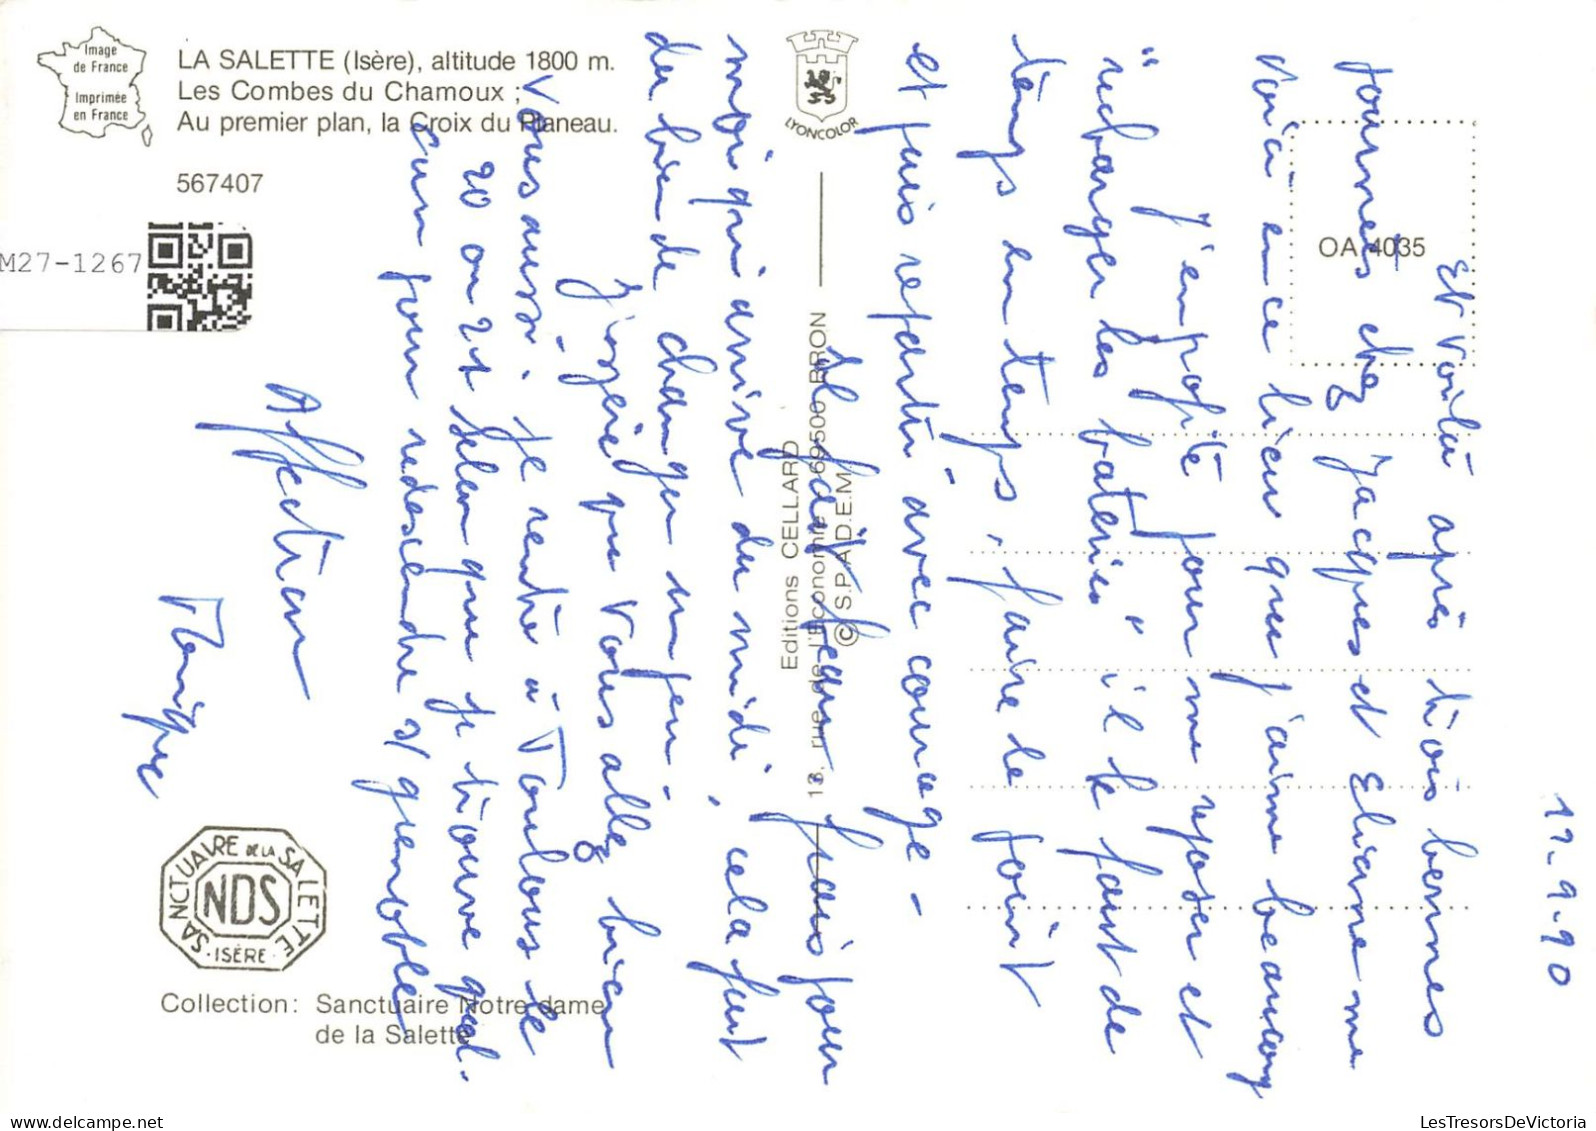 Image
de France
Imprimée
en France
LA SALETTE (Isère), altitude 1800 m.
Les Combes du Chamoux ;
Au premier plan, la Croix du Planeau.
567407
M27-1267
LYONCOLOR
OA 4035
Editions CELLARD
13, rue de l'Economie 69500 BRON
© S.P.A.D.E.M.
SANCTUAIRE DE LA SALETTE
NDS
ISÈRE
Collection: Sanctuaire Notre dame
de la Salette
17-9-90
Et voilà après trois bonnes
journées chez Jacques et Eliane me
voici en ce lieu que j'aime beaucoup
J'en profite pour me reposer et
"recharger les batteries" il le faut de
temps en temps, faire le point
et puis repartir avec courage -
Il fait beau frais pour
moi qui arrive du midi, cela fait
du bien de changer un peu -
J'espère que vous allez bien
vous aussi. Je rentre à Toulouse le
20 ou 21 selon que je trouve quel.
qu'un pour redescendre s/ grenoble
Affection
Monique
LesTresorsDeVictoria